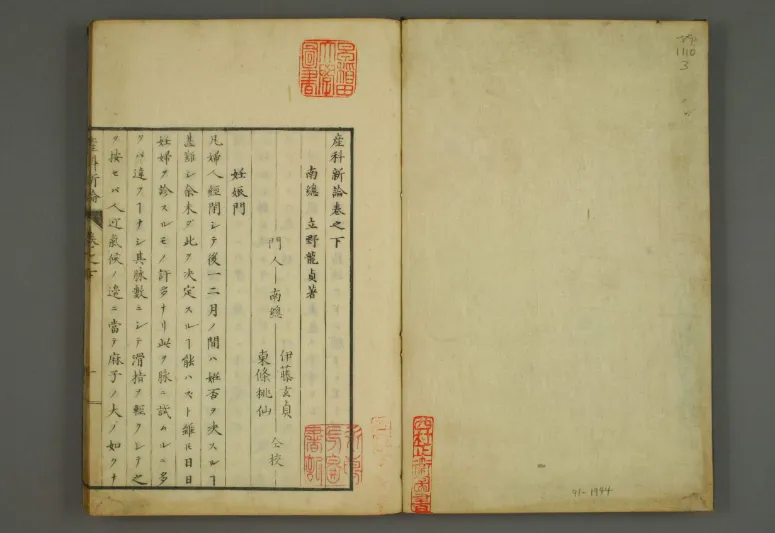 産科新論巻之下
南總 立野龍貞著
門人 南總 伊藤玄貞
東條桃仙 仝校
妊娠門
凡婦人經閉シテ後一二月ノ間ハ妊否ヲ決スルヿ
甚難シ余未ダ此ヲ決定スルヿ能ハズト雖ドモ日日
妊婦ヲ診スルモノ許多ナリ此ヲ脉ニ試ムルニ多
クハ違フヿナシ其脉數ニシテ滑指ヲ輕クシテ之
ヲ按セバ人迎氣候ノ邊ニ當テ麻子ノ大ノ如クナ
産科新論 巻之下
早稲田大學圖書
1110
3
91-1994